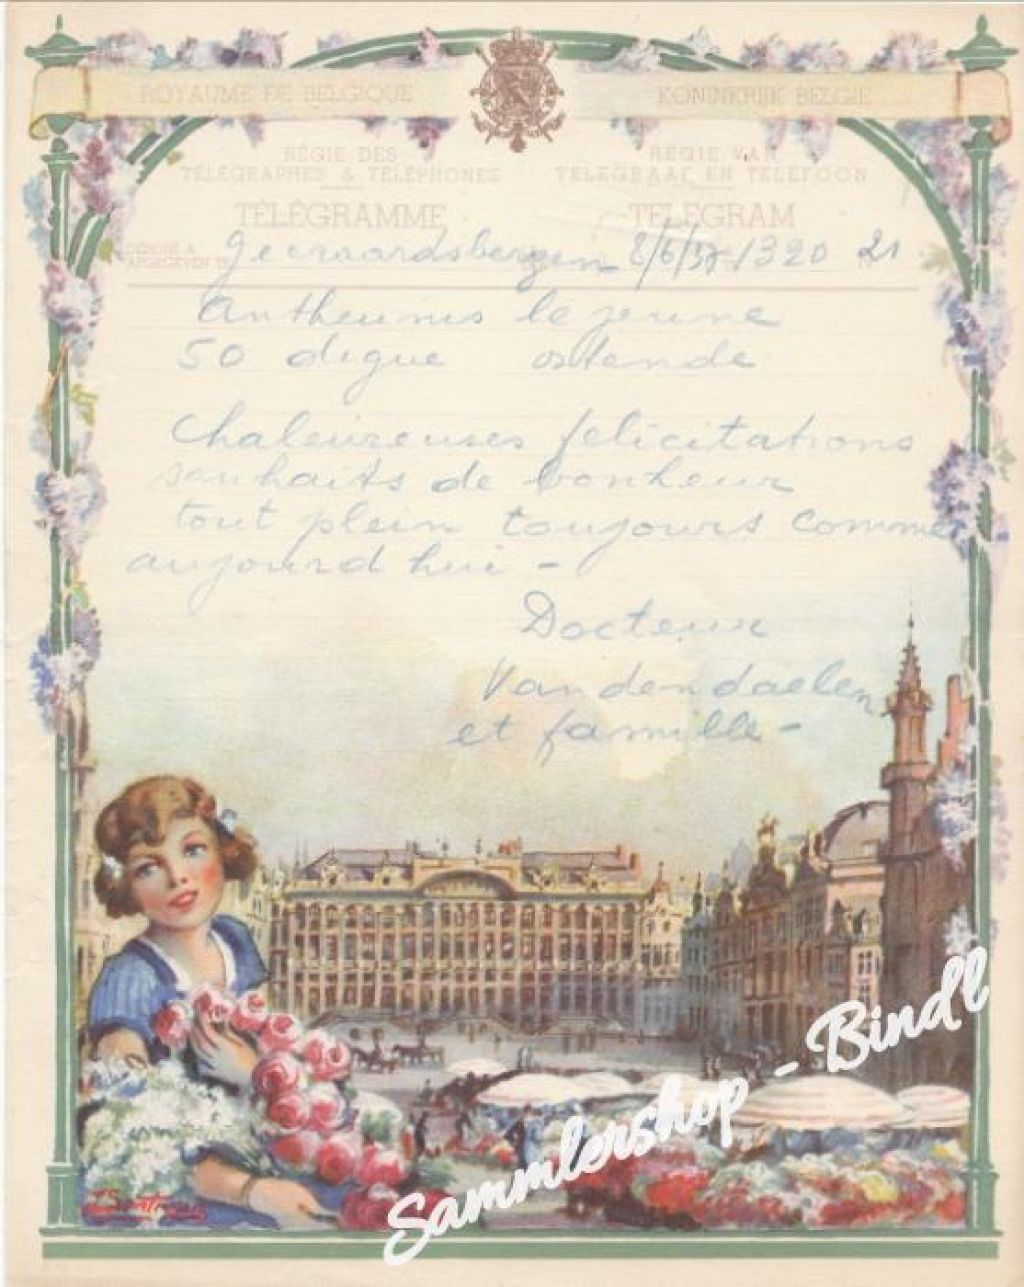 ROYAUME DE BELGIQUE
KONINKRIJK BELGIE
RÉGIE DES
TÉLÉGRAPHES & TÉLÉPHONES
REGIE VAN
TELEGRAAF EN TELEFOON
TÉLÉGRAMME
TELEGRAM
DÉPOSÉ A
AFGEGEVEN TE
Geeraardsbergen 8/6/57 1320 21
Antheunis le jeune
50 digue ostende
Chaleureuses felicitations
souhaits de bonheur
tout plein toujours comme
aujourd hui -
Docteur
Vandendaelen
et famille -
Sammlershop - Bindl